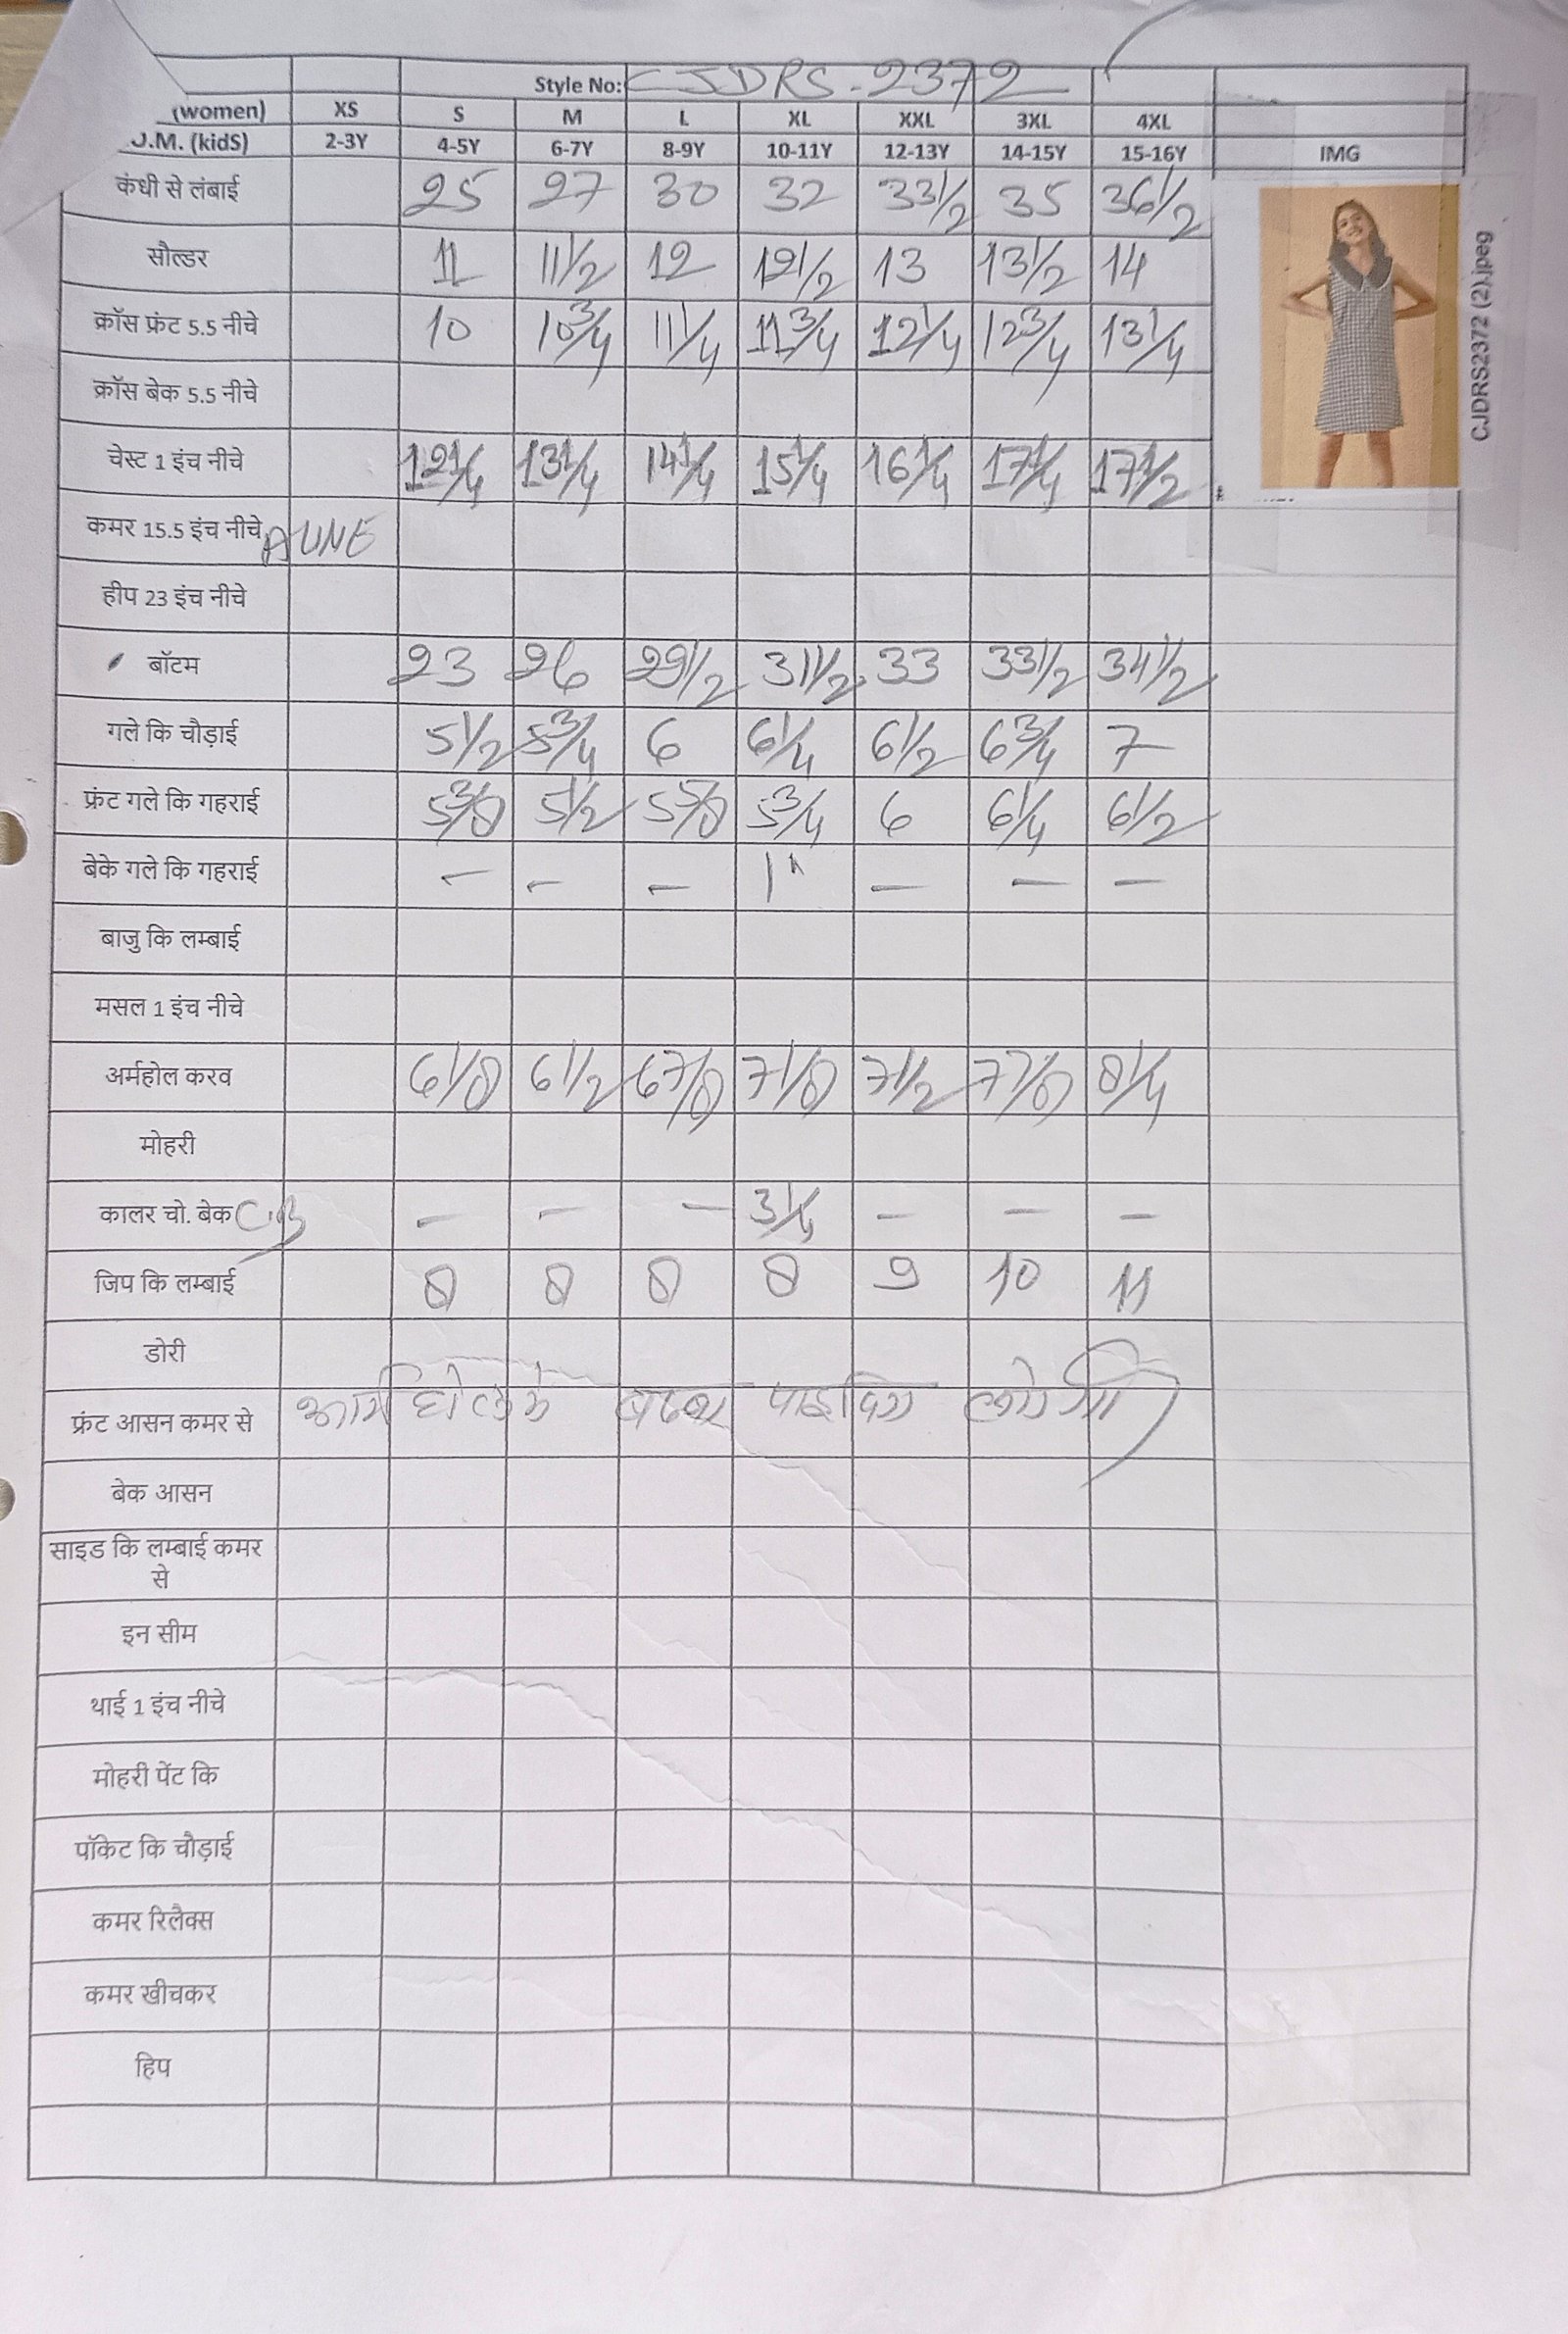 Style No: CJDRS-2372
(women) XS S M L XL XXL 3XL 4XL
O.M. (kidS) 2-3Y 4-5Y 6-7Y 8-9Y 10-11Y 12-13Y 14-15Y 15-16Y IMG
कंधी से लंबाई 25 27 30 32 33 1/2 35 36 1/2
सौल्डर 11 11 1/2 12 12 1/2 13 13 1/2 14
क्रॉस फ्रंट 5.5 नीचे 10 10 3/4 11 1/4 11 3/4 12 1/4 12 3/4 13 1/4
क्रॉस बेक 5.5 नीचे
चेस्ट 1 इंच नीचे 12 1/4 13 1/4 14 1/4 15 1/4 16 1/4 17 1/4 17 1/2
कमर 15.5 इंच नीचे ALINE
हीप 23 इंच नीचे
बॉटम 23 26 29 1/2 31 1/2 33 33 1/2 34 1/2
गले कि चौड़ाई 5 1/2 5 3/4 6 6 1/4 6 1/2 6 3/4 7
फ्रंट गले कि गहराई 5 3/8 5 1/2 5 5/8 5 3/4 6 6 1/4 6 1/2
बेके गले कि गहराई — — — 1" — — —
बाजु कि लम्बाई
मसल 1 इंच नीचे
अर्महोल करव 6 1/8 6 1/2 6 7/8 7 1/8 7 1/2 7 7/8 8 1/4
मोहरी
कालर चो. बेक C.B — — — 3 1/4 — — —
जिप कि लम्बाई 8 8 8 8 9 10 11
डोरी
फ्रंट आसन कमर से पाइपिंग
बेक आसन
साइड कि लम्बाई कमर
से
इन सीम
थाई 1 इंच नीचे
मोहरी पेंट कि
पॉकेट कि चौड़ाई
कमर रिलैक्स
कमर खीचकर
हिप
CJDRS2372 (2).jpeg